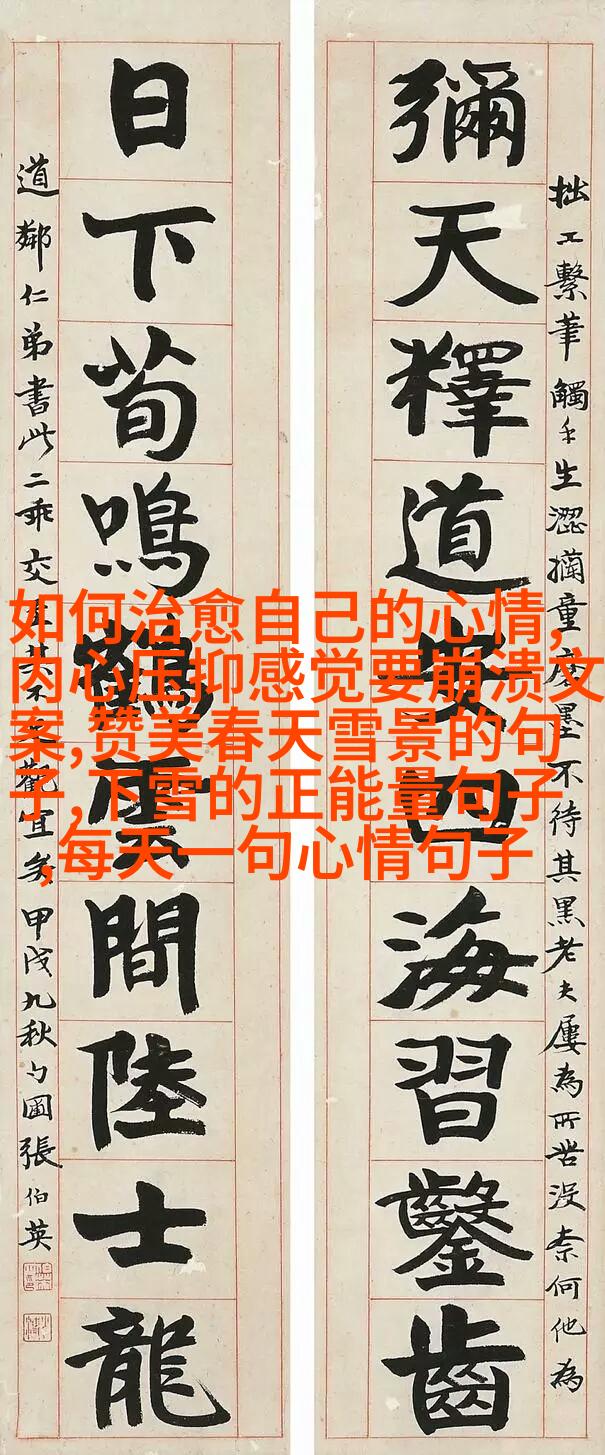 彌天釋道安四海習鑿齒
日下荀鳴鶴雲間陸士龍
拙工繫筆觸手生澀童磨墨不待其黑老夫屢為所苦沒柰何他為
道鄰仁弟書此二乖交其不觀宜矣甲戌九秋勺圃張伯英
如何治愈自己的心情,
内心压抑感觉要崩溃文
案,赞美春天雪景的句
子,下雪的正能量句子
,每天一句心情句子